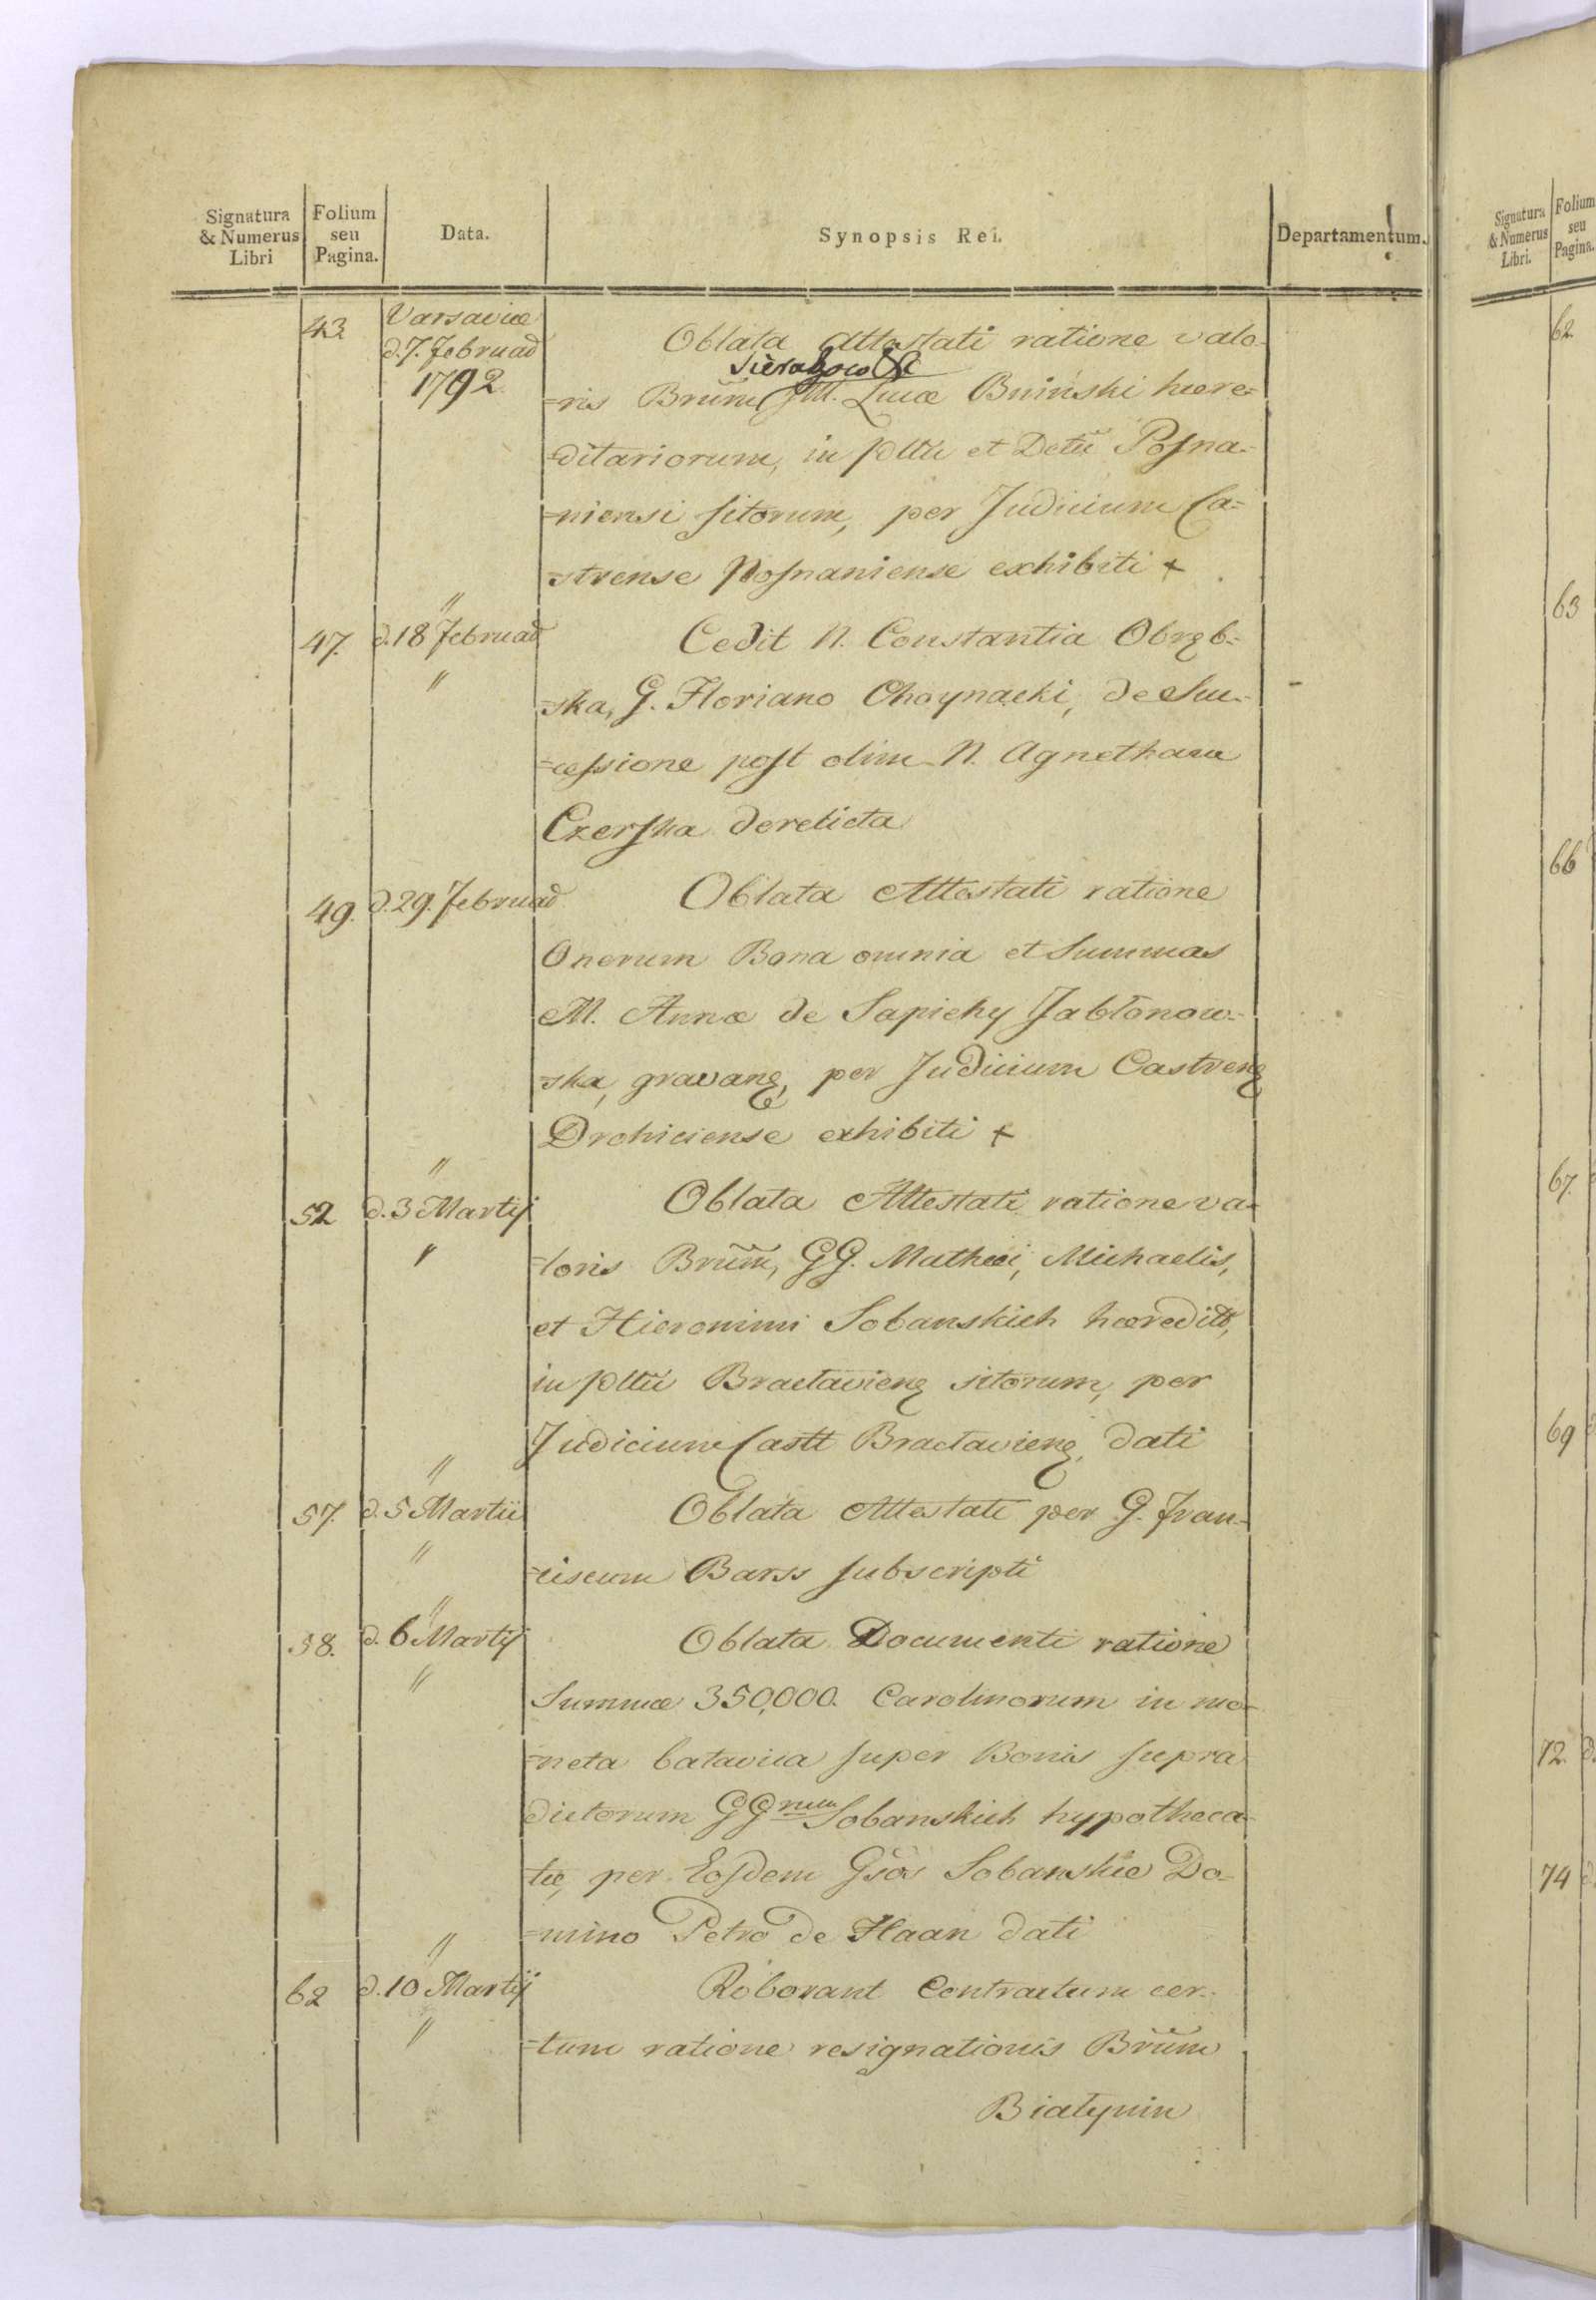 Signatura & Numerus Libri | Folium seu Pagina. | Data. | Synopsis Rei. | Departamentum.
43. Varsaviæ
d. 7. Februar
1792
Oblata Attestati ratione valo-
Sierakowo &c
=ris Brum̃ M. Lucæ Bniński hære=
=ditariorum, in Plttu et Dctu Posna-
=niensi sitorum, per Judicium Ca=
=strense Posnaniense exhibiti +
"
47. d. 18 Februar Cedit N. Constantia Obręb=
"
=ska, G. Floriano Choynacki, de Suc-
=cessione post olim N. Agnetham
Czerska derelicta
49. d. 29. Februar Oblata Attestati ratione
Onerum Bona omnia et Summas
M. Annæ de Sapiehy Jabłonow=
ska, gravang, per Judicium Castreng
Drohiciense exhibiti +
"
52 d. 3 Martij Oblata Attestati ratione va=
"
=loris Brum̃, GG. Mathæi, Michaelis,
et Hieronimi Sobanskich hæreditt,
in Plttu Braclavieng sitorum, per
Judicium Castt Braclavieng, dati
"
57. d. 5 Martii Oblata Attestati per G. Fran=
"
=ciscum Barss subscripti
"
58. d. 6 Martij Oblata Documenti ratione
"
Summæ 350,000. Carolinorum in mo=
=neta batavica super Bonis supra
dictorum GGrum Sobanskich hypotheca-
tæ, per Eosdem Gsos Sobanskie Do=
=mino Petro De Haan dati
"
62 d. 10 Martij Roborant Contractum cer=
"
=tum ratione resignationis Brum̃
Białynin
Signatura & Numerus Libri. | Folium seu Pagina.
62
63
66
67.
69
72.
74